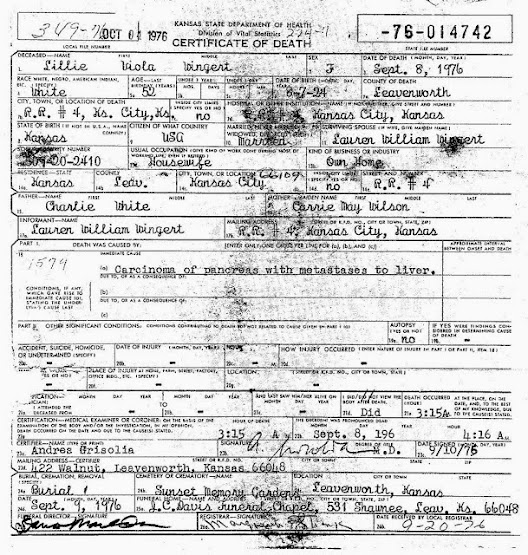 349-76 OCT 04 1976 KANSAS STATE DEPARTMENT OF HEALTH 224-11 -76-014742
LOCAL FILE NUMBER Division of Vital Statistics STATE FILE NUMBER
CERTIFICATE OF DEATH
DECEASED—NAME FIRST MIDDLE LAST SEX DATE OF DEATH (MONTH, DAY, YEAR)
Lillie Viola Wingert F Sept. 8, 1976
RACE WHITE, NEGRO, AMERICAN INDIAN, ETC. (SPECIFY) AGE—LAST BIRTHDAY (YEARS) UNDER 1 YEAR UNDER 1 DAY DATE OF BIRTH (MONTH, DAY, YEAR) COUNTY OF DEATH
White 52 6-7-24 Leavenworth
CITY, TOWN, OR LOCATION OF DEATH INSIDE CITY LIMITS (SPECIFY YES OR NO) HOSPITAL OR OTHER INSTITUTION—NAME (IF NOT IN EITHER, GIVE STREET AND NUMBER)
R.R. # 4, Ks. City, Ks. no R.R. # 4 Kansas City, Kansas
STATE OF BIRTH (IF NOT IN U.S.A., NAME COUNTRY) CITIZEN OF WHAT COUNTRY MARRIED, NEVER MARRIED, WIDOWED, DIVORCED SURVIVING SPOUSE (IF WIFE, GIVE MAIDEN NAME)
Kansas USA Married Lauren William Wingert
SOCIAL SECURITY NUMBER USUAL OCCUPATION (GIVE KIND OF WORK DONE DURING MOST OF WORKING LIFE, EVEN IF RETIRED) KIND OF BUSINESS OR INDUSTRY
20-2410 Housewife Own Home
RESIDENCE—STATE COUNTY CITY, TOWN, OR LOCATION 66109 INSIDE CITY LIMITS (SPECIFY YES OR NO) STREET AND NUMBER
Kansas Leav. Kansas City no R.R. # 4
FATHER—NAME FIRST MIDDLE LAST MOTHER—MAIDEN NAME FIRST MIDDLE LAST
Charlie White Carrie May Wilson
INFORMANT—NAME MAILING ADDRESS (STREET OR R.F.D. NO., CITY OR TOWN, STATE, ZIP)
Lauren William Wingert R.R. # 4, Kansas City, Kansas
PART I. DEATH WAS CAUSED BY: [ENTER ONLY ONE CAUSE PER LINE FOR (a), (b), AND (c)] APPROXIMATE INTERVAL BETWEEN ONSET AND DEATH
18 IMMEDIATE CAUSE
1579 (a) Carcinoma of pancreas with metastases to liver.
DUE TO, OR AS A CONSEQUENCE OF:
CONDITIONS, IF ANY, WHICH GAVE RISE TO IMMEDIATE CAUSE (a), STATING THE UNDERLYING CAUSE LAST
(b)
DUE TO, OR AS A CONSEQUENCE OF:
(c)
PART II. OTHER SIGNIFICANT CONDITIONS: CONDITIONS CONTRIBUTING TO DEATH BUT NOT RELATED TO CAUSE GIVEN IN PART I (a) AUTOPSY (YES OR NO) IF YES WERE FINDINGS CONSIDERED IN DETERMINING CAUSE OF DEATH
no -
ACCIDENT, SUICIDE, HOMICIDE, OR UNDETERMINED (SPECIFY) DATE OF INJURY (MONTH, DAY, YEAR) HOUR HOW INJURY OCCURRED (ENTER NATURE OF INJURY IN PART I OR PART II, ITEM 18)
PLACE OF INJURY AT HOME, FARM, STREET, FACTORY, OFFICE BLDG., ETC. (SPECIFY) LOCATION (STREET OR R.F.D. NO., CITY OR TOWN, STATE)
I ATTENDED THE DECEASED FROM AND LAST SAW HIM/HER ALIVE ON I DID/DID NOT VIEW THE BODY AFTER DEATH. DEATH OCCURRED AT THE PLACE, ON THE DATE, AND, TO THE BEST OF MY KNOWLEDGE, DUE TO THE CAUSE(S) STATED.
Did 3:15A
CERTIFICATION—MEDICAL EXAMINER OR CORONER: ON THE BASIS OF THE EXAMINATION OF THE BODY AND/OR THE INVESTIGATION, IN MY OPINION, DEATH OCCURRED ON THE DATE AND DUE TO THE CAUSE(S) STATED.
3:15 A Sept. 8, 196 4:16 A
CERTIFIER—NAME (TYPE OR PRINT) SIGNATURE DEGREE OR TITLE DATE SIGNED (MONTH, DAY, YEAR)
Andres Grisolia M.D. 9/10/76
MAILING ADDRESS—CERTIFIER STREET OR R.F.D. NO. CITY OR TOWN STATE ZIP
422 Walnut, Leavenworth, Kansas 66048
BURIAL, CREMATION, REMOVAL (SPECIFY) CEMETERY OR CREMATORY—NAME LOCATION CITY OR TOWN STATE
Burial Sunset Memory Gardens Leavenworth, Kansas
DATE (MONTH, DAY, YEAR) FUNERAL HOME—NAME AND ADDRESS (STREET OR R.F.D. NO., CITY OR TOWN, STATE, ZIP)
Sept. 9, 1976 J.C. Davis Funeral Chapel, 531 Shawnee, Leav. Ks. 66048
FUNERAL DIRECTOR—SIGNATURE REGISTRAR—SIGNATURE DATE RECEIVED BY LOCAL REGISTRAR
9-20-76